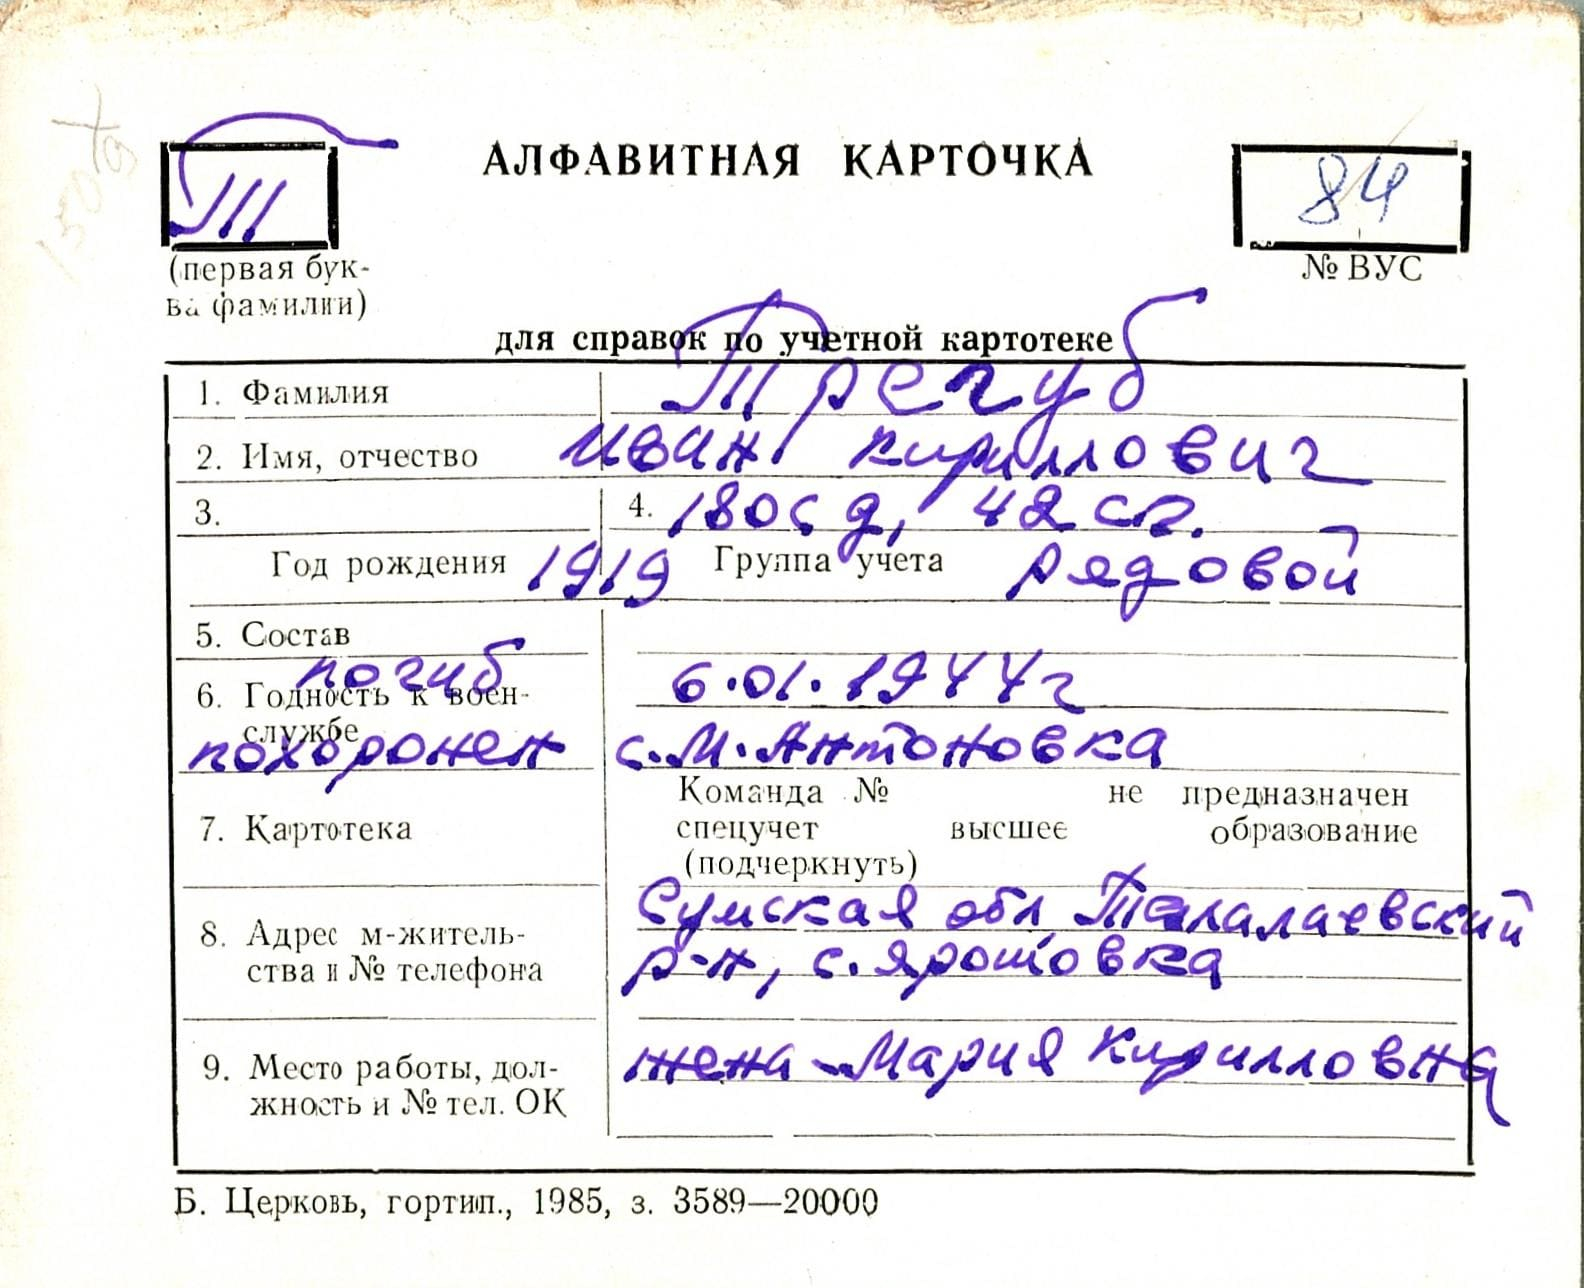 Т
АЛФАВИТНАЯ КАРТОЧКА
84
(первая бук-
ва фамилии)
№ ВУС
для справок по учетной картотеке
1. Фамилия Трегуб
2. Имя, отчество Иван Кириллович
3. 4. 180 сд, 42 сп.
Год рождения 1919 Группа учета рядовой
5. Состав
погиб 6.01.1944г
6. Годность к воен-
службе
похоронен с. М. Антоновка
7. Картотека
Команда № не предназначен
спецучет высшее образование
(подчеркнуть)
8. Адрес м-житель-
ства и № телефона
Сумская обл, Талалаевский
р-н, с. Ярошовка
9. Место работы, дол-
жность и № тел. ОК
жена - Мария Кирилловна
Б. Церковь, гортип., 1985, з. 3589—20000